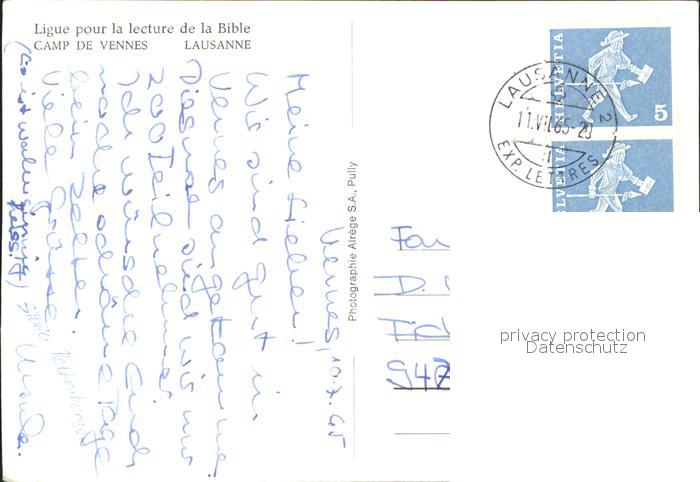 Ligue pour la lecture de la Bible
CAMP DE VENNES LAUSANNE
Vennes, 10.7.65
Meine Lieben!
Wir sind gut in
Vennes angekommen.
Diesmal sind wir nur
200 Teilnehmer.
Ich wünsche Euch
noch schöne Tage
beim Zelten.
Viele Grüsse
Ursula.
(Es ist wahnsinnig
heiss!)
Photographie Alrège S.A., Pully
LAUSANNE 2
11.VII.65-20
EXP. LETTRES
HELVETIA
5
HELVETIA
Fa
D.
Fid
947
privacy protection
Datenschutz